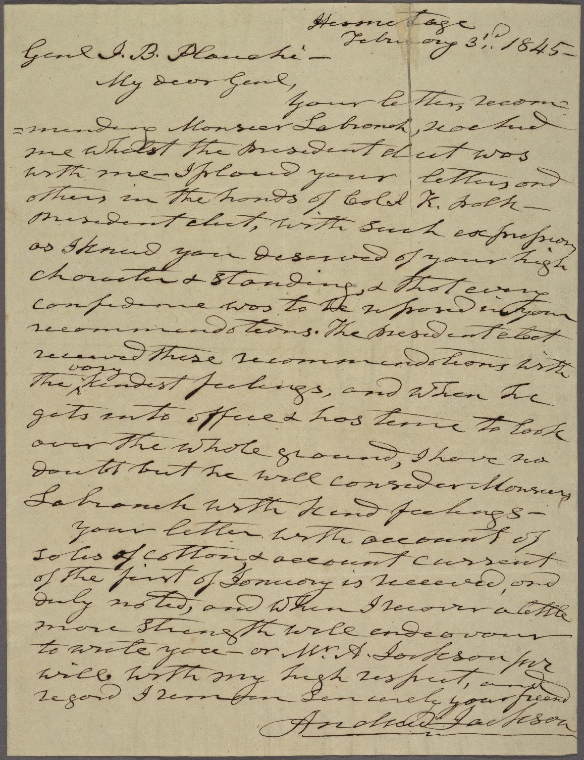 Hermitage
February 3rd 1845—
Genl J. B. Plauché—
My dear Genl,
Your letter, recom=
=mending Monsieur Labranch, reached
me whilst the President elect was
with me— I placed your letters and
others in the hands of Col J. K. Polk—
President elect, with such expressions
as I knew you deserved of your high
character & standing, & that every
confidence was to be reposed in your
recommendations. The President elect
received these recommendations with
the very kindest feelings, and when he
gets into office & has time to look
over the whole ground, I have no
doubt but he will consider Monsieur
Labranch with kind feelings—
Your letter with account of
sales of cotton & account current
of the first of January is received, and
duly noted, and when I recover a little
more strength will endeavour
to write you— or Mr. A. Jackson jnr
will, with my high respect, and
regard I remain sincerely your friend
Andrew Jackson